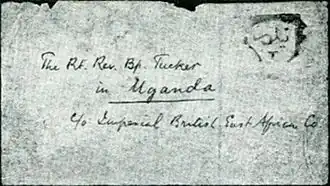 The Rt. Rev. Bp. Tucker
in
Uganda
c/o Imperial British East African Co.